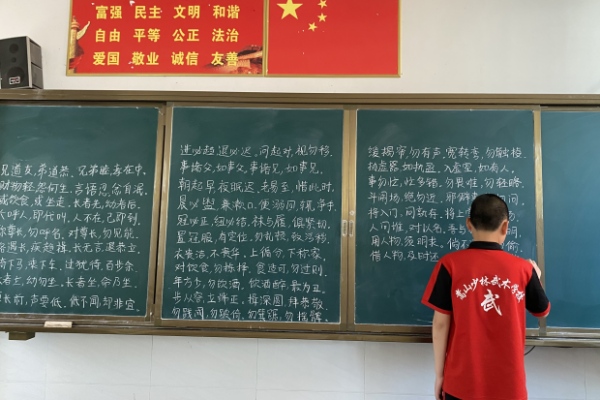 富强 民主 文明 和谐
自由 平等 公正 法治
爱国 敬业 诚信 友善
兄道友,弟道恭,兄弟睦,孝在中。
财物轻,怨何生,言语忍,忿自泯。
或饮食,或坐走,长者先,幼者后。
长呼人,即代叫,人不在,己即到。
称尊长,勿呼名,对尊长,勿见能。
路遇长,疾趋揖,长无言,退恭立。
骑下马,乘下车,过犹待,百步余。
长者立,幼勿坐,长者坐,命乃坐。
尊长前,声要低,低不闻,却非宜。
进必趋,退必迟,问起对,视勿移。
事诸父,如事父,事诸兄,如事兄。
朝起早,夜眠迟,老易至,惜此时。
晨必盥,兼漱口,便溺回,辄净手。
冠必正,纽必结,袜与履,俱紧切。
置冠服,有定位,勿乱顿,致污秽。
衣贵洁,不贵华,上循分,下称家。
对饮食,勿拣择,食适可,勿过则。
年方少,勿饮酒,饮酒醉,最为丑。
步从容,立端正,揖深圆,拜恭敬。
勿践阈,勿跛倚,勿箕踞,勿摇髀。
缓揭帘,勿有声,宽转弯,勿触棱。
执虚器,如执盈,入虚室,如有人。
事勿忙,忙多错,勿畏难,勿轻略。
斗闹场,绝勿近,邪僻事,问。
将入门,问孰存,将上
人问谁,对以名,吾与
用人物,须明求,倘不 偷。
借人物,及时还,
嵩山少林武术学校
武